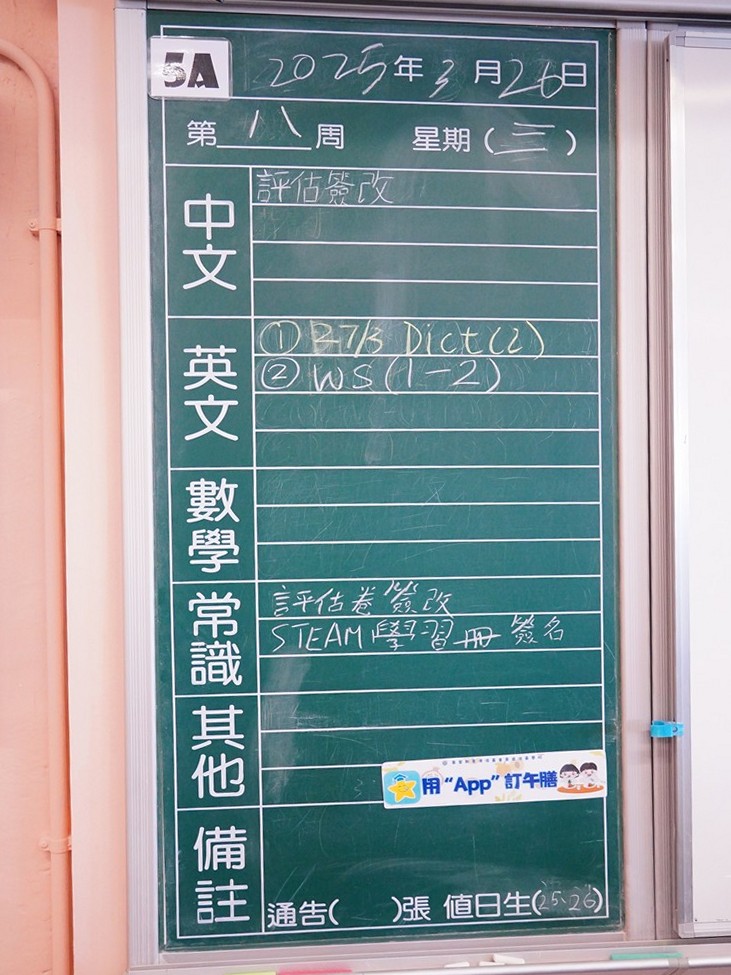 5A
2025年3月26日
第 八 周 星期(三)
中文
評估簽改
英文
① 27/3 Dict(2)
② WS(1-2)
數學
常識
評估卷簽改
STEAM學習冊簽名
其他
用“App”訂午膳
備註
通告( )張 值日生(25、26)